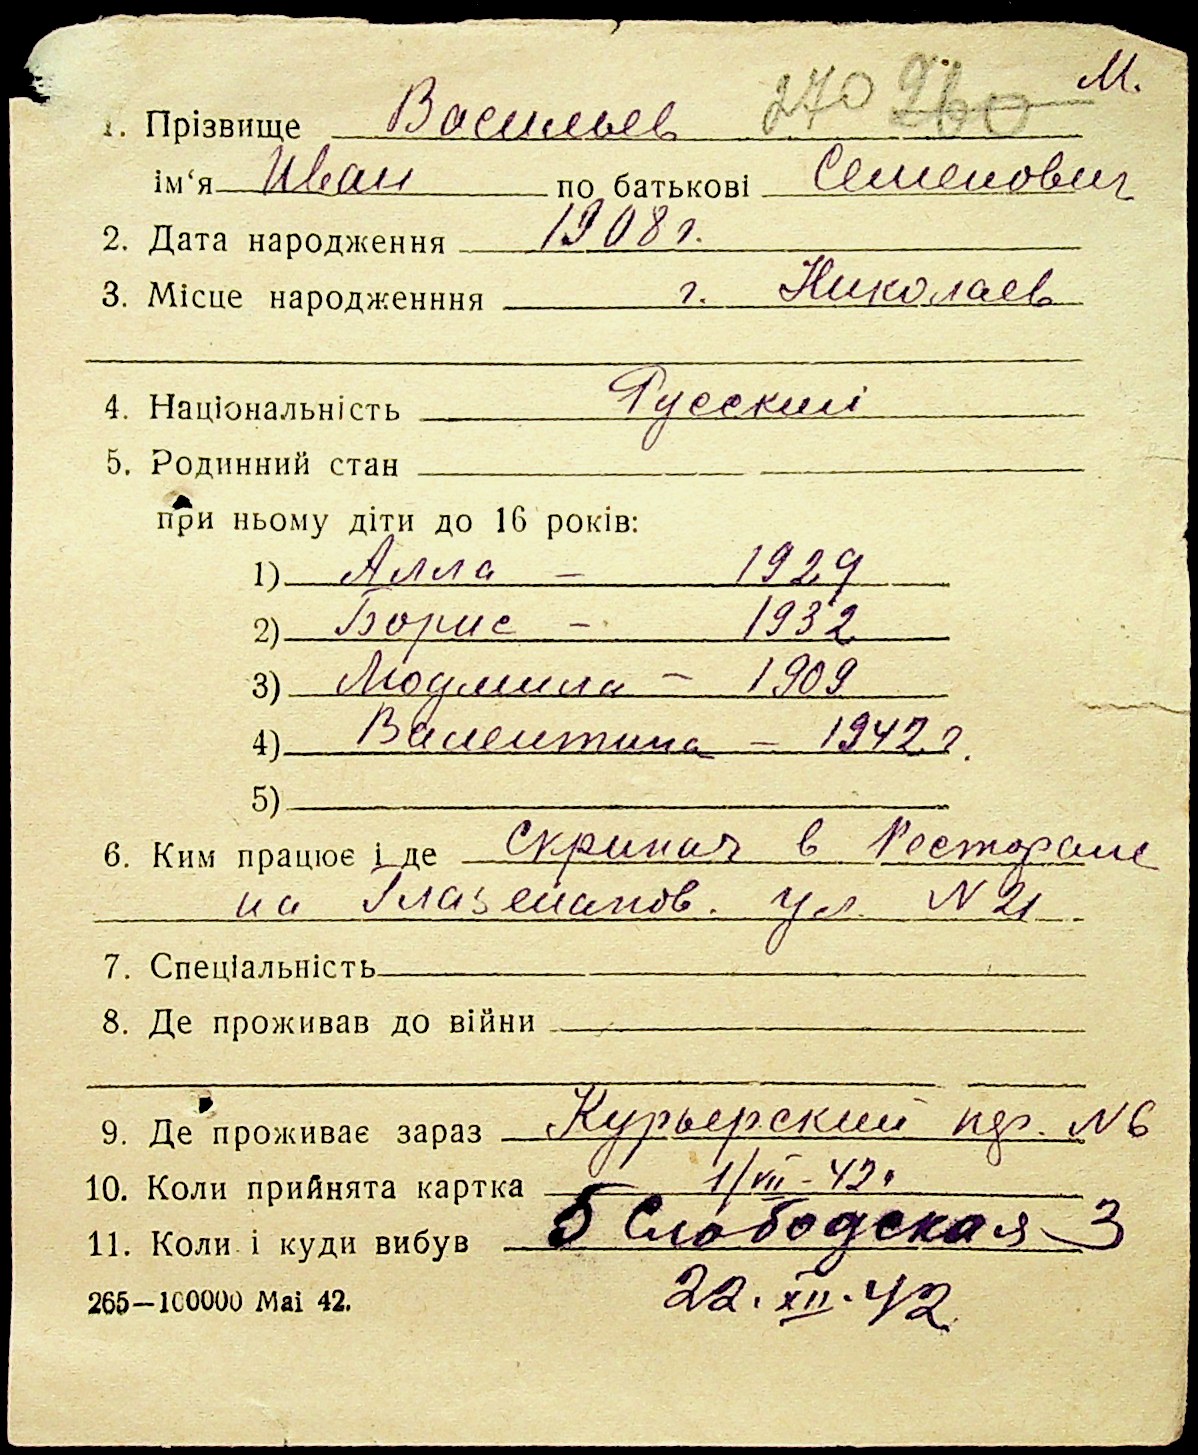 270 260 М.
1. Прізвище Васильев
ім‘я Иван по батькові Семенович
2. Дата народження 1908 г.
3. Місце народженння г. Николаев
4. Національність Русский
5. Родинний стан
при ньому діти до 16 років:
1) Алла – 1929
2) Борис – 1932
3) Людмила – 1909
4) Валентина – 1942 г.
5)
6. Ким працює і де Скрипач в Ресторане
на Глазенапов. ул. N 21
7. Спеціальність
8. Де проживав до війни
9. Де проживає зараз Курьерский пер. N 6
10. Коли прийнята картка 1/VII - 42.
11. Коли і куди вибув 5 Слободская 3
265—100000 Маі 42. 22. XII. 42